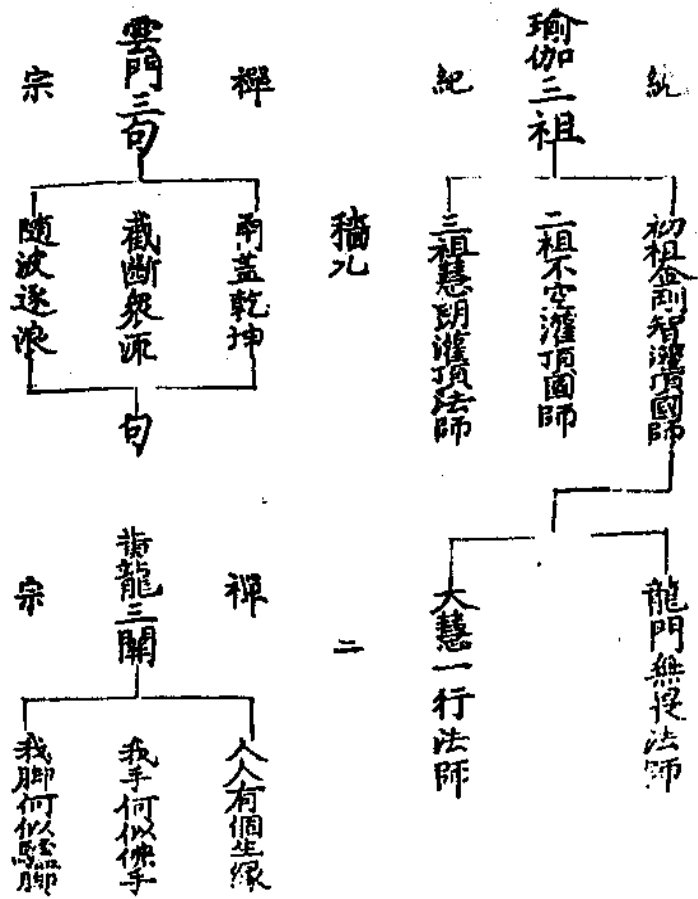 統
瑜伽三祖
紀
初祖金剛智灌頂國師
二祖不空灌頂國師
三祖慧朗灌頂法師
龍門無畏法師
大慧一行法師
二
禪
雲門三句
宗
函蓋乾坤
截斷衆流
隨波逐浪
句
禪
黃龍三關
宗
人人有個生緣
我手何似佛手
我脚何似驢脚